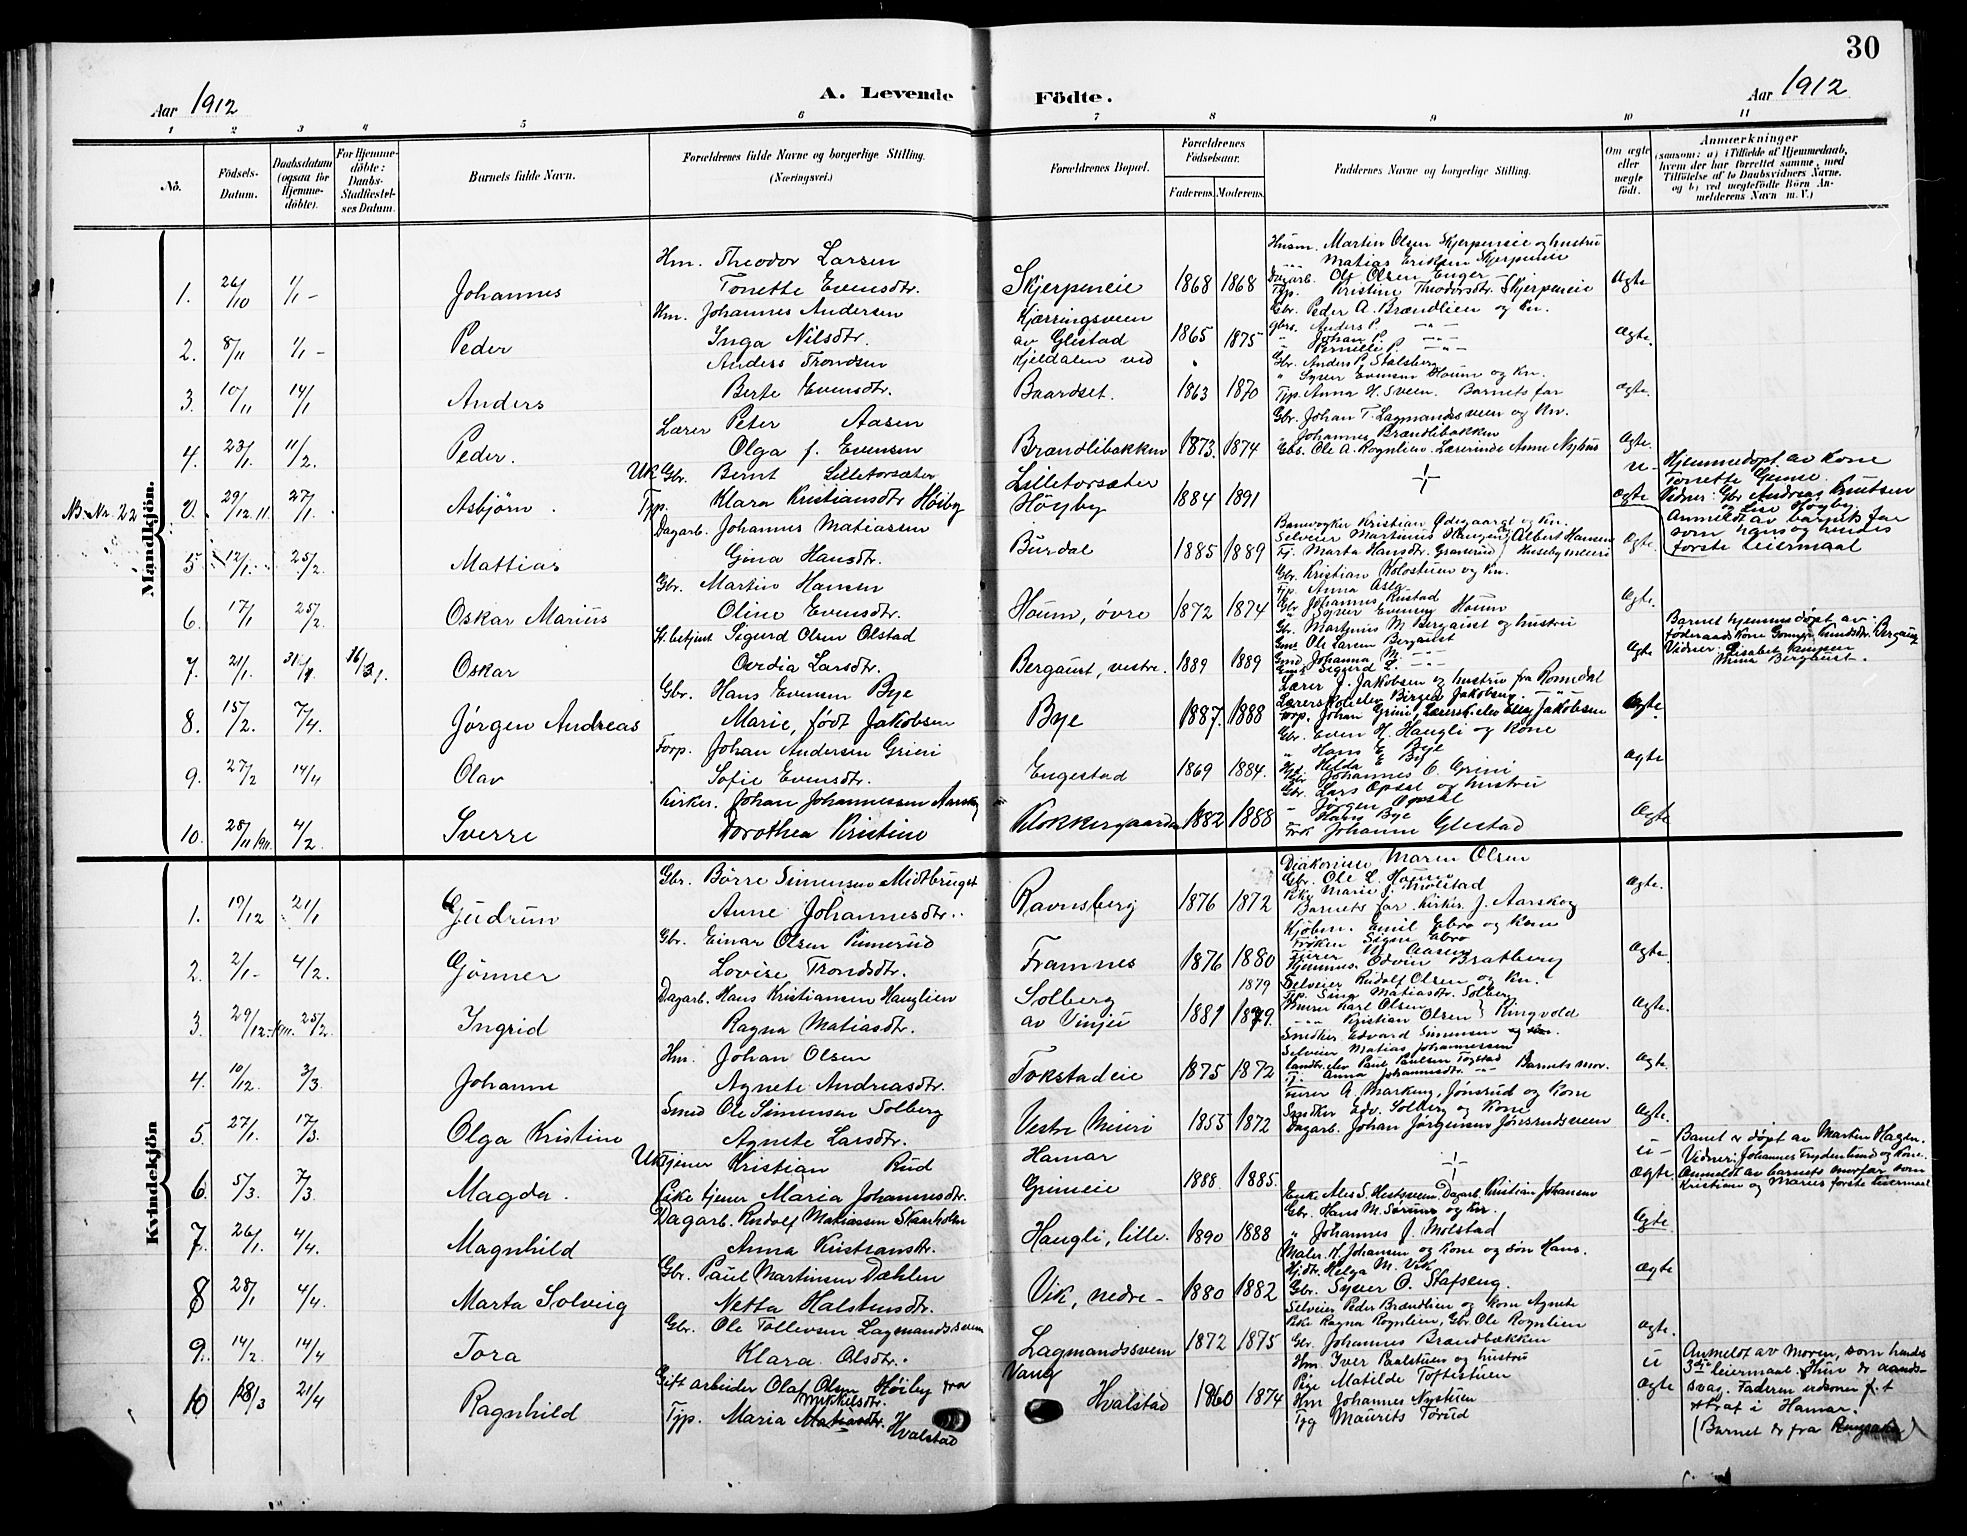 30
Aar 1912
A. Levende Födte.
Aar 1912
1 2 3 4 5 6 7 8 9 10 11
Nô.
Födsels-Datum.
Daabsdatum (ogsaa for Hjemmedöbte).
For Hjemmedöbte: Daabs-Stadfæstelses Datum.
Barnets fulde Navn.
Forældrenes fulde Navne og borgerlige Stilling. (Næringsvei.)
Forældrenes Bopæl.
Forældrenes Födselsaar.
Faderens. Moderens.
Faddernes Navne og borgerlige Stilling.
Om ægte eller uægte födt.
Anmærkninger (saasom: a) i Tilfælde af Hjemmedaab, hvem der har forrettet samme, med Tilföielse af to Daabsvidners Navne, og b) ved uægtefödte Börn Anmelderens Navn m. V.)
Mandkjön.
1. 26/10 1/1- Johannes
Hm. Theodor Larsen
Tonette Evensdtr.
Skjerpeneie 1868 1868
Husm. Martin Olsen Skjerpeneie og hustru
Matias Eriksen Skjerpeneie
Dagarb. Ole Olsen Enger
Tjp. Kristine Theodorsdtr. Skjerpeneie
Ægte
2. 8/11 1/1- Peder
Hm. Johannes Andersen
Inga Nilsdtr.
Kjærringsveen av Glestad 1865 1875
Gbr. Peder A. Brændlien og kn.
Gbrs. Anders P. -"-
" Johan P. -"-
" Pernille P. -"-
Ægte.
3. 10/11 14/1 Anders
Anders Trondsen
Berte Evensdtr.
Kjeldalen ved Baardset. 1863 1870
Gbr. Anders P. Stalsberg
" Syver Evensen Houm og kn.
Tjp. Anna H. Sveen. Barnets far
Ægte.
4. 23/1. 11/2. Peder.
Lærer Peter Aasen
Olga f. Evensen
Brændlibakken 1873. 1874
Gbr. Johan T. Lagmandssveen og kn.
" Johannes Brændlibakken
Gbs. Ole A. Rognlien. Lærerinde Anne Nyhus
Ægte.
NB. Nr. 22 29/12.11. 27/1. Asbjørn.
UK Gbr. Bernt Lilletorsæter
Tjp. Klara Kristiansdtr Høiby
Lilletorsæter
Höyby 1884 1891
u-
Ægte
Hjemmedøpt av Kone
Tonette Gjense.
Vidner: Gbr Andreas Knutsen
og Lise Høgby.
Anmeldt av barnets far
som hans og hendes
første leiermaal
5. 12/1. 25/2. Mattias
Dagarb. Johannes Matiassen
Gina Hansdtr.
Burdal 1885 1889
Banevogter Kristian Ødegaard og kn.
Tj. Marta Hansdtr. Albert Hansen
Ægte.
6. 17/1 25/2. Oskar Marius
Gbr. Martin Hansen
Oline Evensdtr.
Houm, øvre 1872 1874
Gbr. Kristian Kolostuen og kn.
Tjp. Anna
Gbr. Johannes Rustad
" Syver Evensen Houm
Ægte.
7. 21/1. Oskar
St.betjent Sigurd Olsen Olstad
Ovedia Larsdtr.
Bergaust, vestre. 1889 1889
Gbr. Martinus M Bergaust og hustru
Ole Larsen Bergaust
Johanna M. -"-
Sigurd L. -"-
Ægte
Barnet hjemmedøpt av
föderaads kone Bergaust.
Vidner: Lisabet
Mina Berghust.
8. 15/2. 7/4. Jørgen Andreas
Gbr. Hans Evensen Bye
Marie, født Jakobsen
Bye 1887. 1888
Lærer J. Jakobsen og hustru fra Romedal
Lærerskoleelev Birger Jakobsen.
Forp. Johan Grini, Lærersk.elev Jakobsen
Ægte.
9. 27/2 14/4 Olav
Forp. Johan Andersen Grini
Sofie Evensdtr.
Engestad 1869 1884.
Gbr. Even H. Haugli og Kone
" Hans E Bye
Helda E Bye
Gbr Johannes O. Grini
Ægte
10. 28/11 1911. 4/2. Sverre
Kirkes. Johan Johannessen Aarskog
Dorothea Kristine
Klokkergaarden 1882 1888
Gbr. Lars Opsal og hustru
" Jørgen Opsal
" Hans Bye
Frk Johanne Glestad
Ægte
Kvindekjön
1. 17/12 21/1 Gudrun
Gbr. Börre Simensen Midtbruget
Anne Johannesdtr.
Ravnsberg 1876 1872
Diakonisse Maren Olsen
Gbr. Ole L. Houm
Pike Marie J. Molstad
Barnets far. Kirkes. J. Aarskog
Ægte.
2. 2/1- 4/2. Gönner
Gbr. Einar Olsen Pinnerud
Lovise Trondsdtr.
Framnes 1876 1880
Kjøbm. Emil Ebro og Kone
Frøken Signe Ebro
Lærer Aasen
Hjemmes. Edvin Bratberg
Ægte.
3. 29/12-1911. 25/2. Ingrid
Dagarb. Hans Kristiansen Hauglien
Ragna Matiasdtr.
Solberg av Vinjei 1881 1879.
1879
Selveier Rudolf Olsen og kn.
Tjp. Matiasdtr. Solberg
Murer Karl Olsen
Kristian Olsen } Ringvold
Ægte.
4. 10/12. 3/3. Johanne
Hm. Johan Olsen
Agnete Andreasdtr.
Tokstadeie 1875 1872
Snedker Edvard Simensen og kn.
Selveier Matias Johannessen
Paul Paulsen Togstad
Tj. Anna Johannesdtr. -"- Barnets mor.
Ægte.
5. 27/1. 17/3. Olga Kristine
Smed Ole Simensen Solberg
Agnete Larsdtr.
Vestre Meieri 1853 1872
Lærer A. Markeng, Jønsrud og kone
Snedker Edv. Solberg og Kone
Dagarb. Johan Jørgensen Jønsrudsveen
Ægte.
6. 5/3. 7/3. Magda.
UK Tjener Kristian Rud
Pike tjener Maria Johannesdtr.
Hamar
Grimeie 1888. 1885.
u-
Ægte.
Barnet er døpt av Martin Hagen.
Vidner: Johannes Frydenlund og Kone.
Anmeldt av barnets morfar som
Kristian og Maries første leiermaal
7. 26/1. 4/4. Magnhild
Dagarb. Rudolf Matiassen Skarholm
Anna Kristiansdtr.
Haugli, lille. 1890 1888
Enke Ales S. Hestesveen. Dagarb. Kristian Johansen
Gbr. Hans M. Sørum og kn.
" Johannes J. Molstad
Ægte
8 28/1 4/4. Marta Solveig
Gbr. Paul Martinsen Dæhlen
Netta Halstensdtr.
Vik, nedre- 1880 1882
Maler K. Johansen og Kone og søn Hans.
Hjdtr. Helga M. Vik
Gbr. Syver O. Stafseng.
Ægte
9. 14/2. 14/4 Tora
Gbr. Ole Tollevsen Lagmandssveen
Klara Olsdtr.
Lagmandssveen 1872 1875
Selveier Peder Brændlien og kone Agnete
Pike Ragna Rognlien, Gbr. Ole Rognlien
Gbr. Johannes Brændbækken
Ægte.
10 18/3 21/4 Ragnhild
Gift arbeider Olaf Olsen Høiby fra Vang
Tjp. Maria Matiasdtr. Mikkelsdtr. Hvalstad
Hvalstad 1860 1874
Hm Iver Paalstuen og hustru
Pige Matilde Toftestuen
Hm Johannes Nystuen
Tjg Maurits Torud
u
Ægte
Anmeldt av Moren, som hendes
3die leiermaal. Hun er aands-
svag. Faderen utsoner f. t.
straf i Hamar.
(Barnet er fra